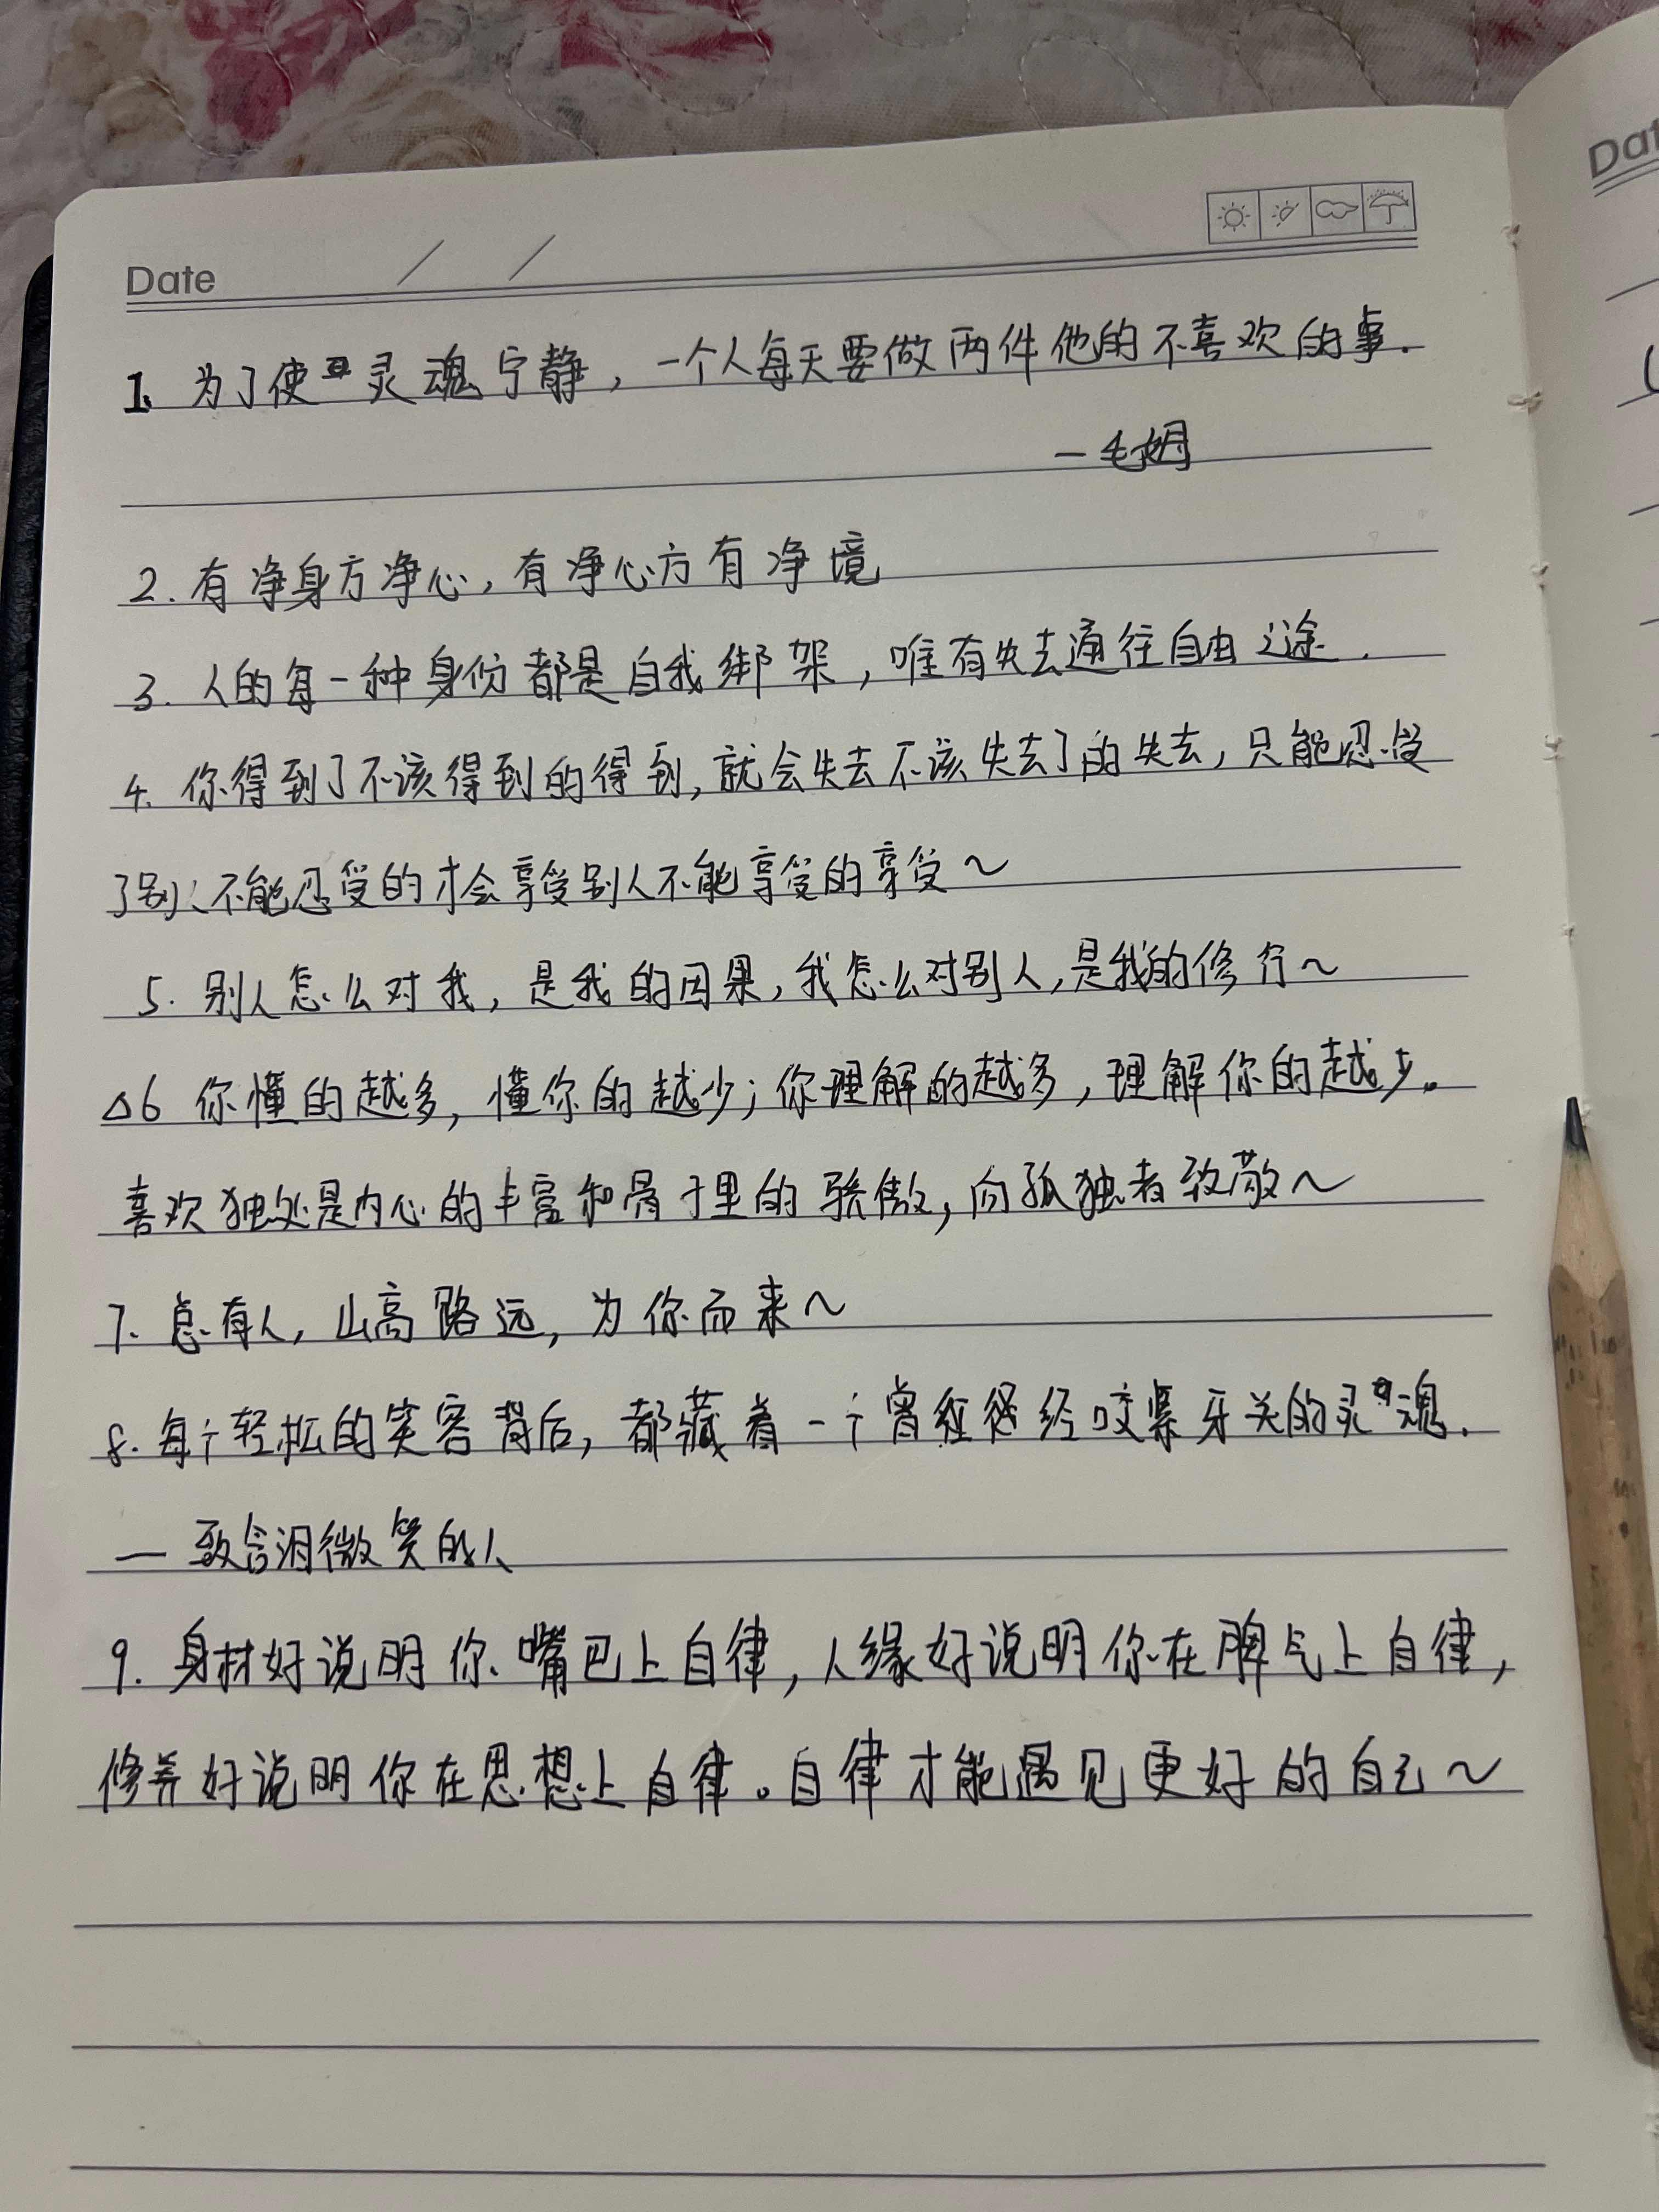 Date / /
1. 为了使灵魂宁静，一个人每天要做两件他的不喜欢的事.
— 毛姆
2. 有净身方净心, 有净心方有净境
3. 人的每一种身份都是自我绑架，唯有失去通往自由之途.
4. 你得到了不该得到的得到, 就会失去不该失去了的失去, 只能忍受
了别人不能忍受的才会享受别人不能享受的享受~
5. 别人怎么对我, 是我的因果, 我怎么对别人, 是我的修行~
△6 你懂的越多, 懂你的越少; 你理解的越多, 理解你的越少。
喜欢独处是内心的丰富和骨子里的骄傲, 向孤独者致敬~
7. 总有人, 山高路远, 为你而来~
8. 每个轻松的笑容背后, 都藏着一个曾经咬紧牙关的灵魂.
— 致含泪微笑的人
9. 身材好说明你嘴巴上自律, 人缘好说明你在脾气上自律,
修养好说明你在思想上自律。自律才能遇见更好的自己~